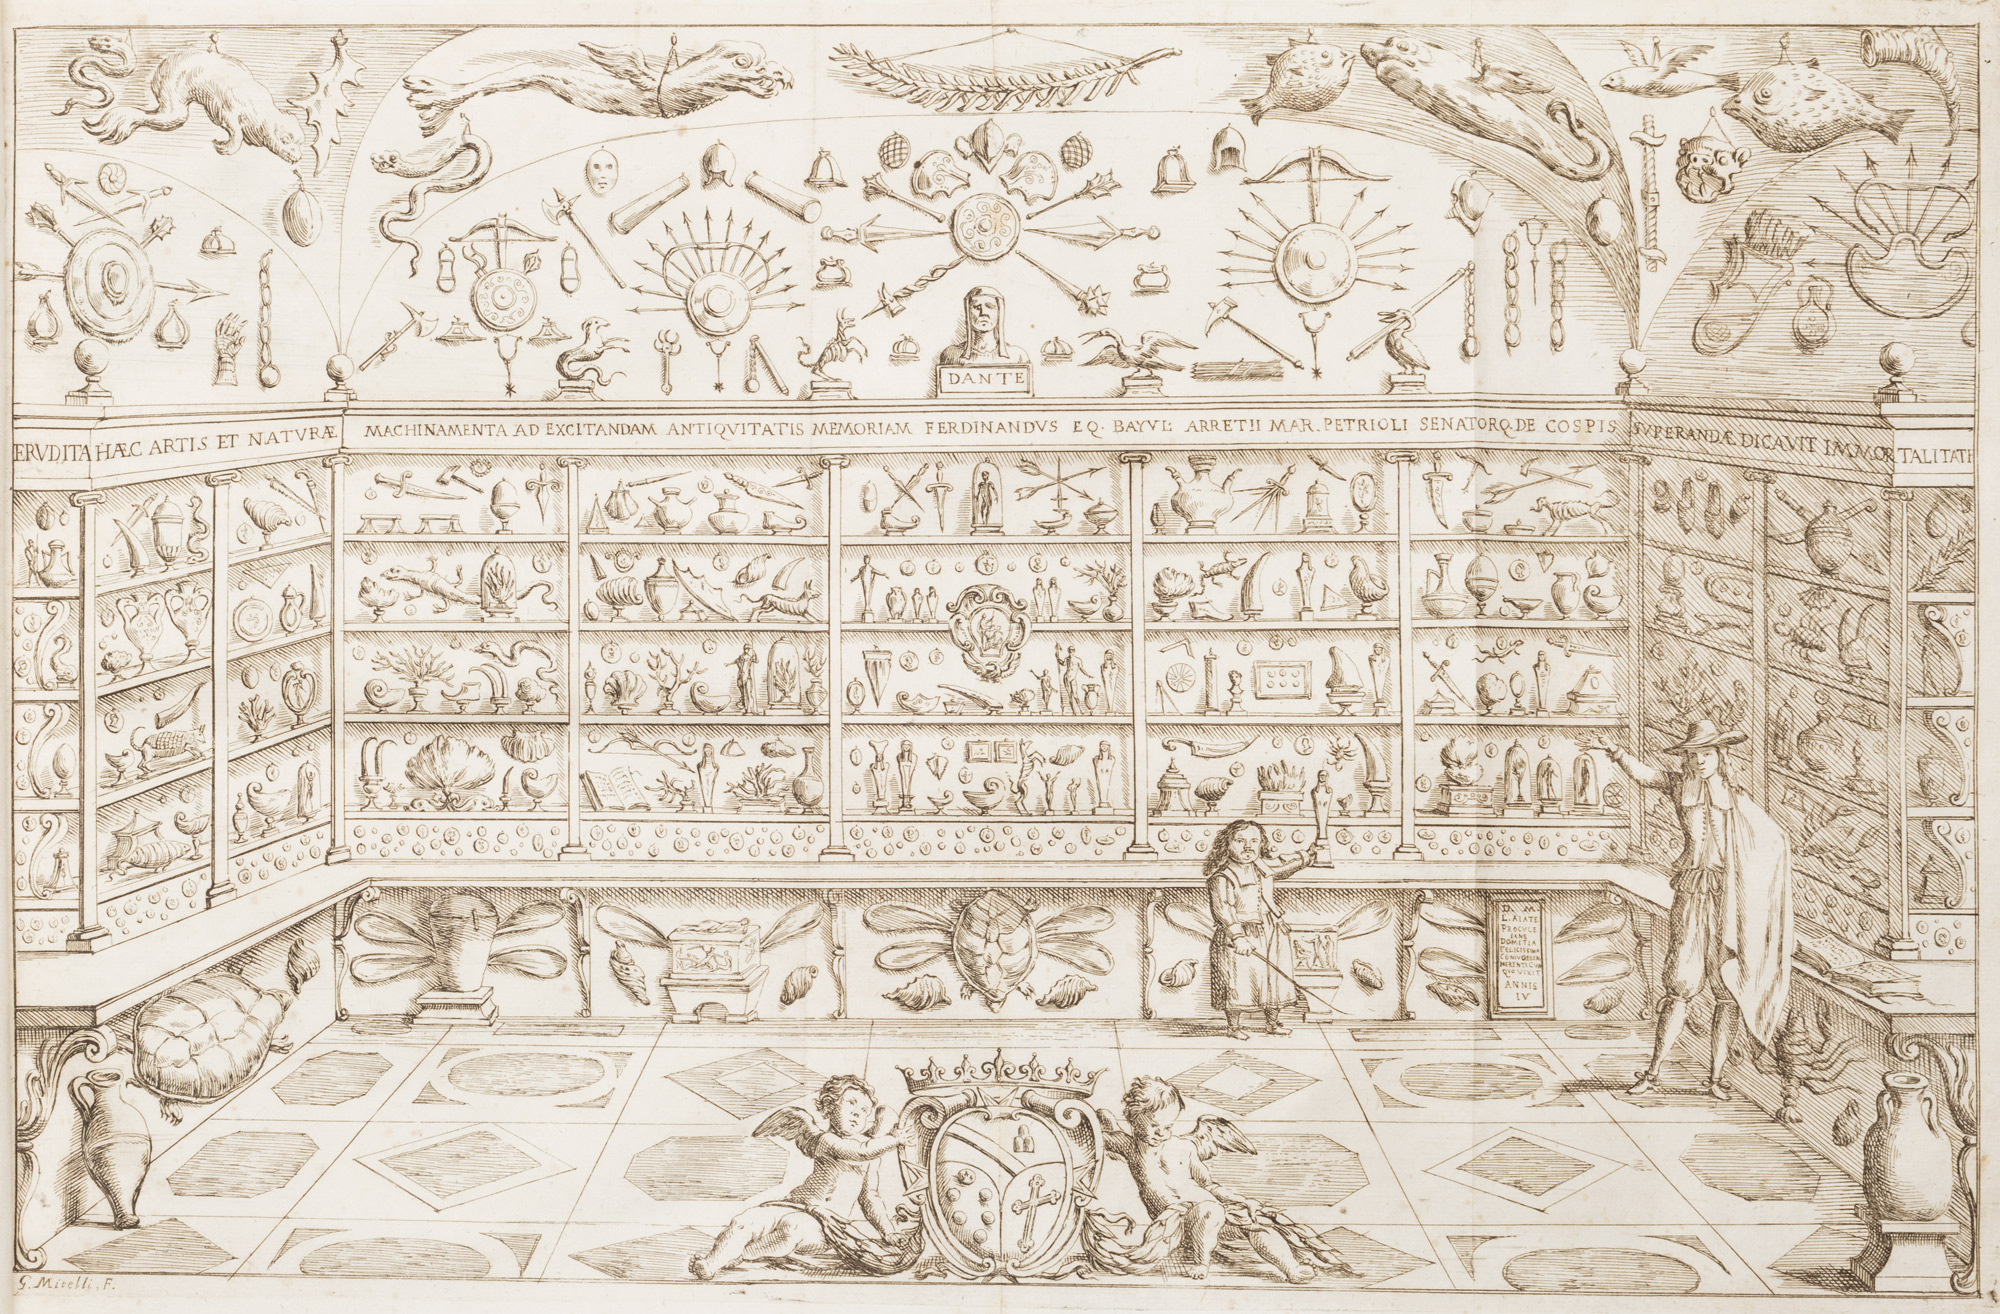 DANTE
ERVDITA HÆC ARTIS ET NATVRÆ MACHINAMENTA AD EXCITANDAM ANTIQVITATIS MEMORIAM FERDINANDVS EQ. BAYVL: ARRETII MAR. PETRIOLI SENATORQ. DE COSPIS SVPERANDÆ DICAVIT IMMORTALITATI
D. M.
L. ALATE
PROCVLE
IANE
DOMITIA
FELICISSIMA
CONIVGI
MERENTI
QVE VIXIT
ANNIS
IV
G. Mitelli. F.